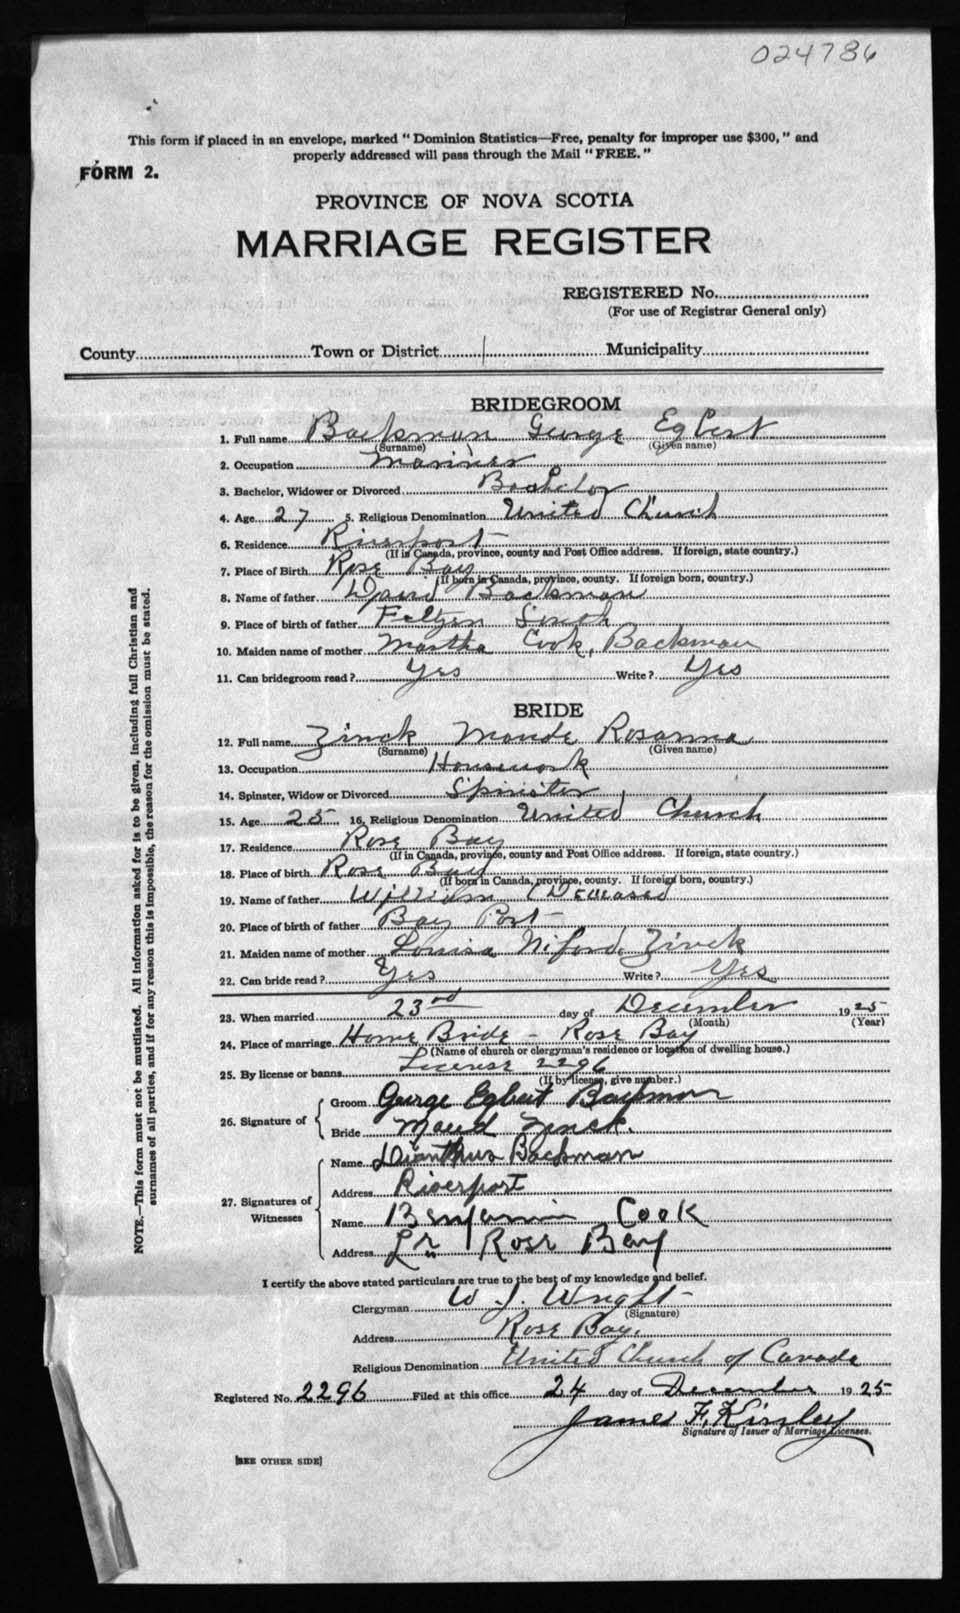 024786
This form if placed in an envelope, marked "Dominion Statistics—Free, penalty for improper use $300," and
properly addressed will pass through the Mail "FREE."
FORM 2.
PROVINCE OF NOVA SCOTIA
MARRIAGE REGISTER
REGISTERED No.
(For use of Registrar General only)
County Town or District Municipality
BRIDEGROOM
1. Full name Backman George Egbert
(Surname) (Given name)
2. Occupation Mariner
3. Bachelor, Widower or Divorced Bachelor
4. Age 27 5. Religious Denomination United Church
6. Residence Riverport
(If in Canada, province, county and Post Office address. If foreign, state country.)
7. Place of Birth Rose Bay
(If born in Canada, province, county. If foreign born, country.)
8. Name of father David Backman
9. Place of birth of father Feltzen South
10. Maiden name of mother Martha Cook, Backman
11. Can bridegroom read? Yes Write? Yes
BRIDE
12. Full name Zinck Maude Rosanna
(Surname) (Given name)
13. Occupation Housework
14. Spinster, Widow or Divorced Spinster
15. Age 25 16. Religious Denomination United Church
17. Residence Rose Bay
(If in Canada, province, county and Post Office address. If foreign, state country.)
18. Place of birth Rose Bay
(If born in Canada, province, county. If foreign born, country.)
19. Name of father William (Deceased
20. Place of birth of father Bay Port
21. Maiden name of mother Louisa Zinck
22. Can bride read? Yes Write? Yes
23. When married 23rd day of December 1925
(Month) (Year)
24. Place of marriage Home Bride - Rose Bay
(Name of church or clergyman's residence or location of dwelling house.)
25. By license or banns License 2296
(If by license, give number.)
26. Signature of Groom George Egbert Backman
Bride Maud Zinck.
27. Signatures of Witnesses Name Dianthus Backman
Address Riverport
Name Benjamin Cook
Address Lr Rose Bay
I certify the above stated particulars are true to the best of my knowledge and belief.
Clergyman W. J. Wright
(Signature)
Address Rose Bay.
Religious Denomination United Church of Canada
Registered No. 2296 Filed at this office 24 day of December 1925
James F. Kinley
Signature of Issuer of Marriage Licenses.
[SEE OTHER SIDE]
NOTE.—This form must not be mutilated. All information asked for is to be given, including full Christian and
surnames of all parties, and if for any reason this is impossible, the reason for the omission must be stated.